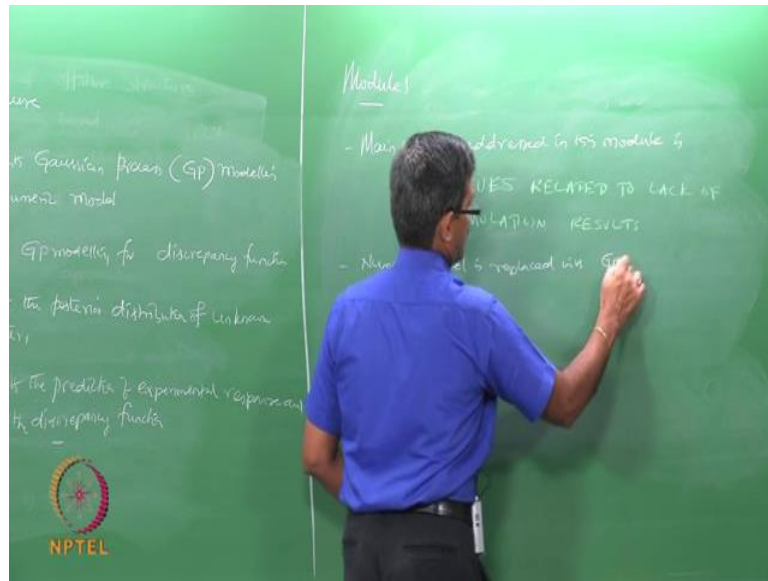 offshore structure
Gaussian Process (GP) modelling
model
GP modelling for discrepancy function
the posterior distribution of unknown
the prediction of experimental response and
the discrepancy function
Module 1
- Main addressed in this module is
UES RELATED TO LACK OF
ULATION RESULTS
- is replaced with
NPTEL